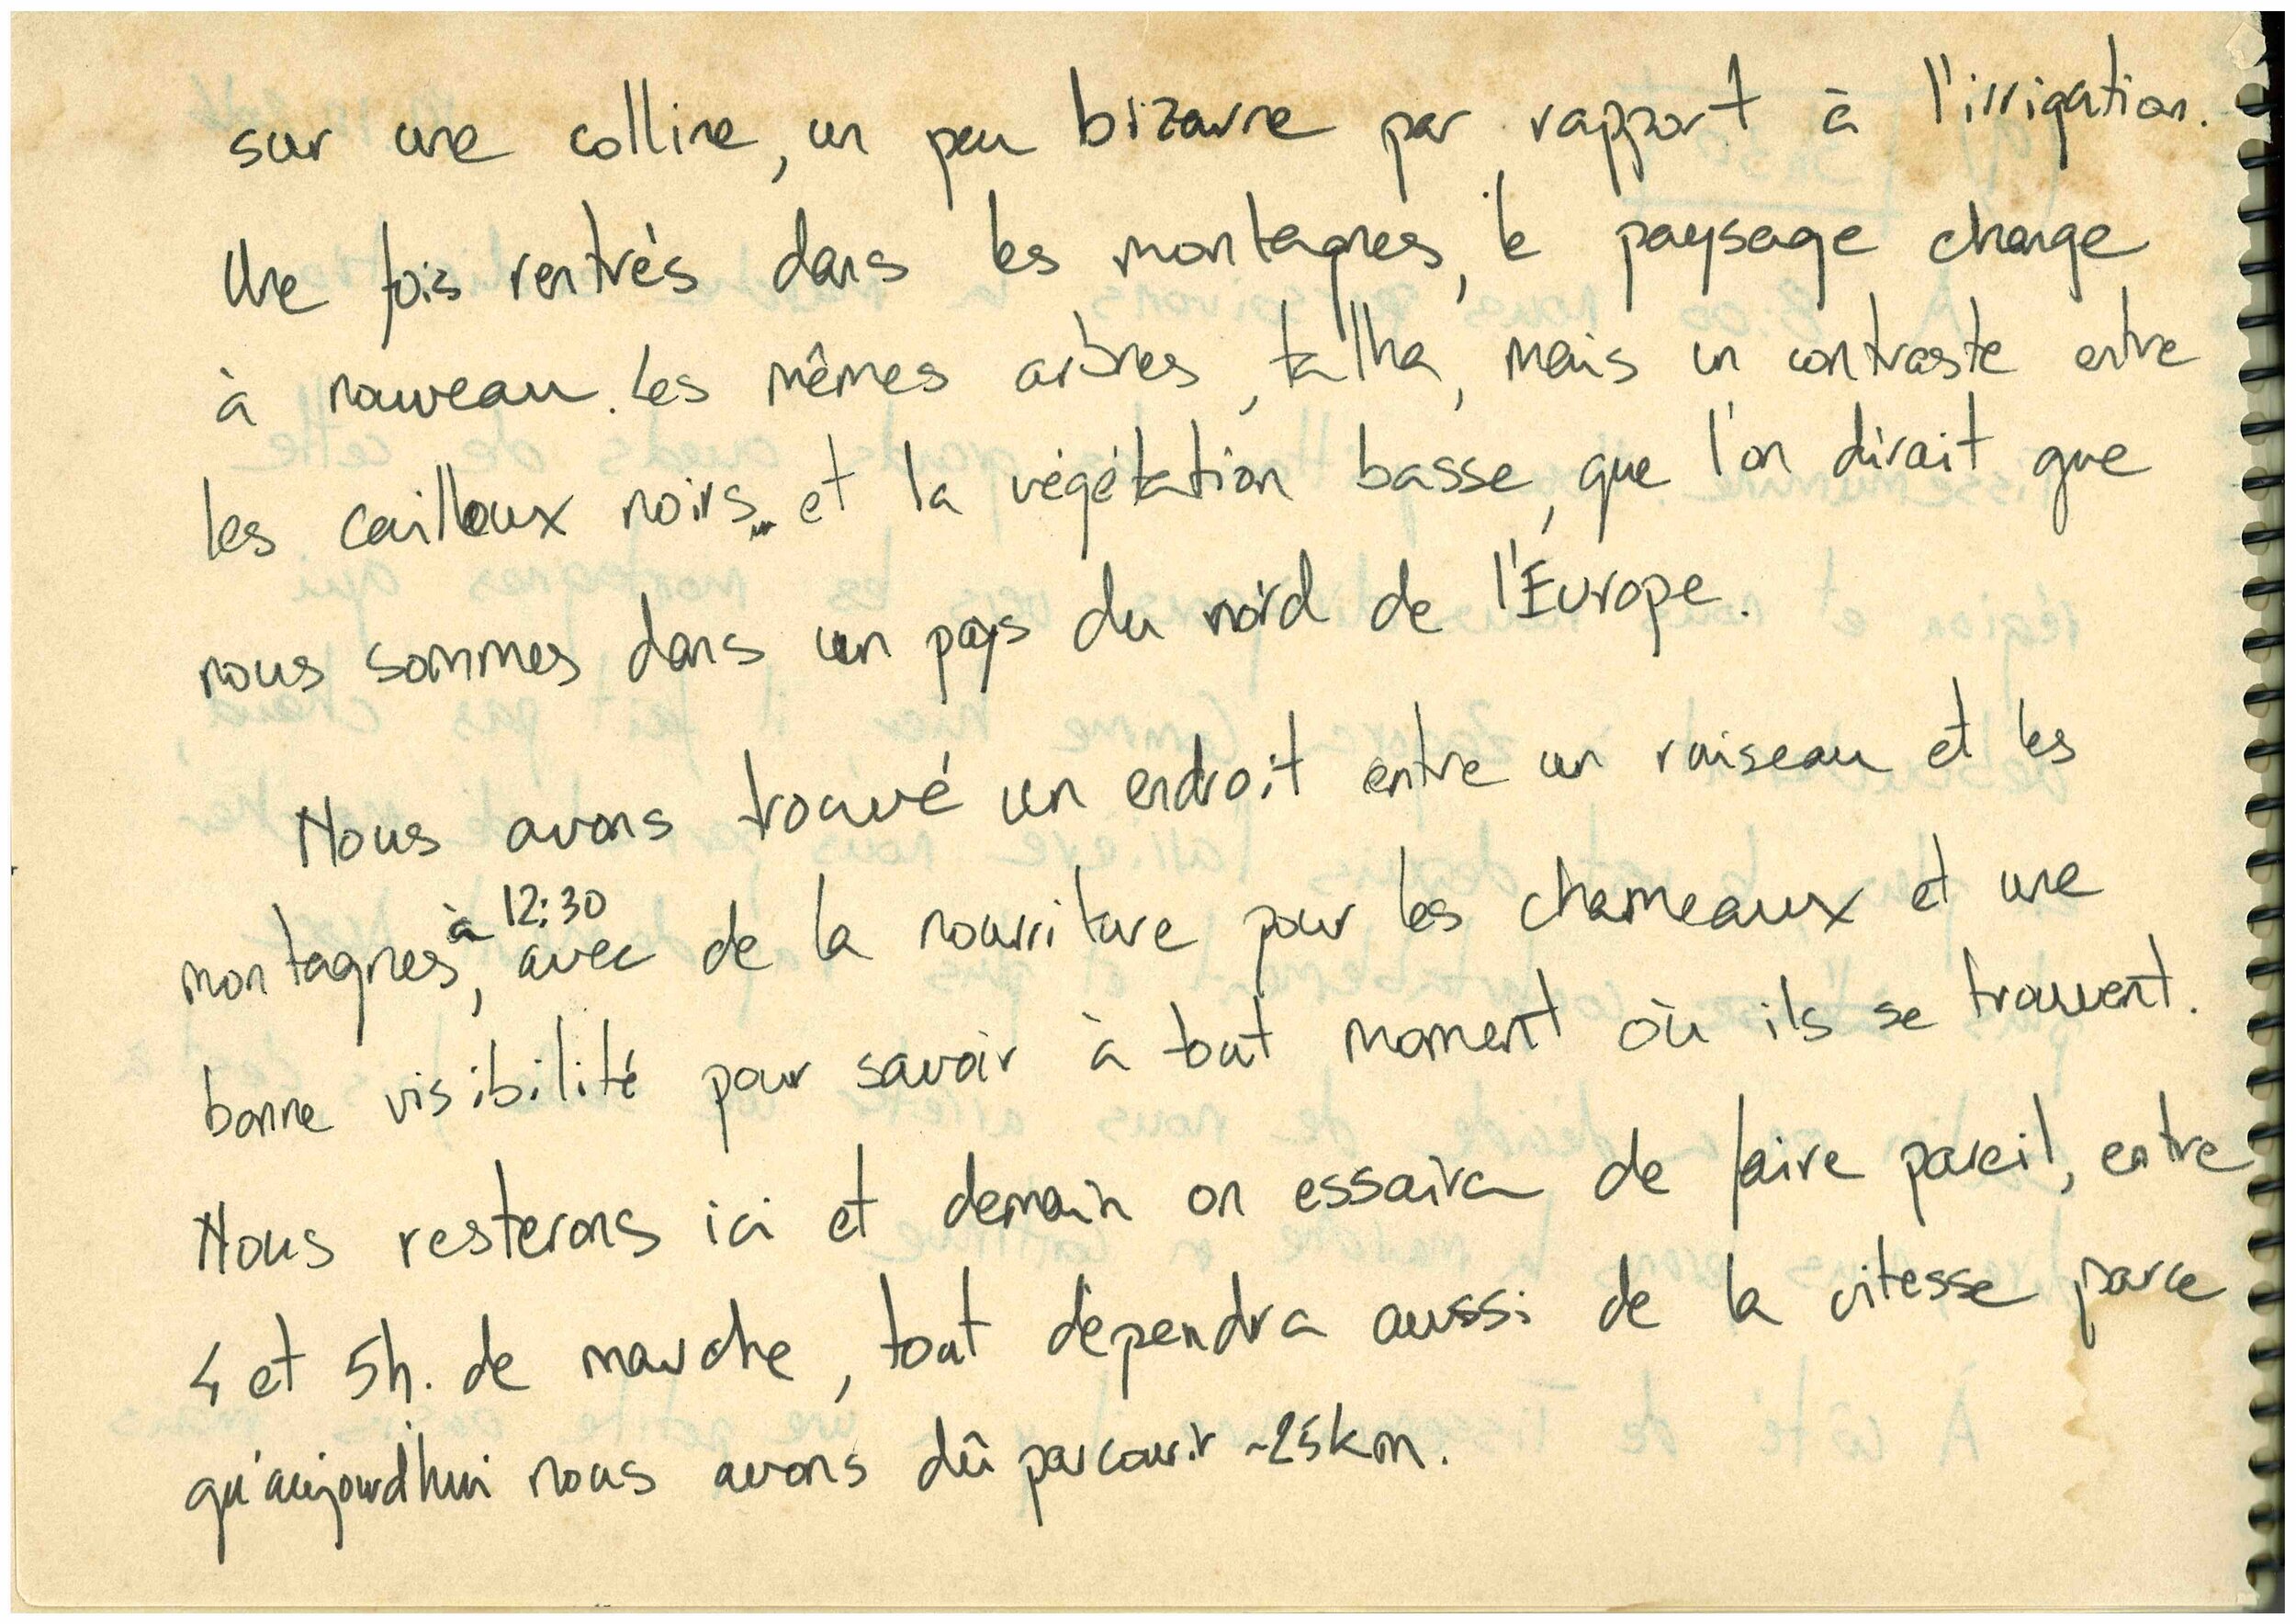 sur une colline, un peu bizarre par rapport à l'irrigation.
Une fois rentrés dans les montagnes, le paysage change
à nouveau. Les mêmes arbres, talha, mais un contraste entre
les cailloux noirs et la végétation basse, que l'on dirait que
nous sommes dans un pays du nord de l'Europe.
Nous avons trouvé un endroit entre un ruiseau et les
montagnes à 12:30, avec de la nourriture pour les chameaux et une
bonne visibilité pour savoir à tout moment où ils se trouvent.
Nous resterons ici et demain on essaira de faire pareil, entre
4 et 5h. de marche, tout dépendra aussi de la vitesse parce
qu'aujourd'hui nous avons dû parcourir ~25km.